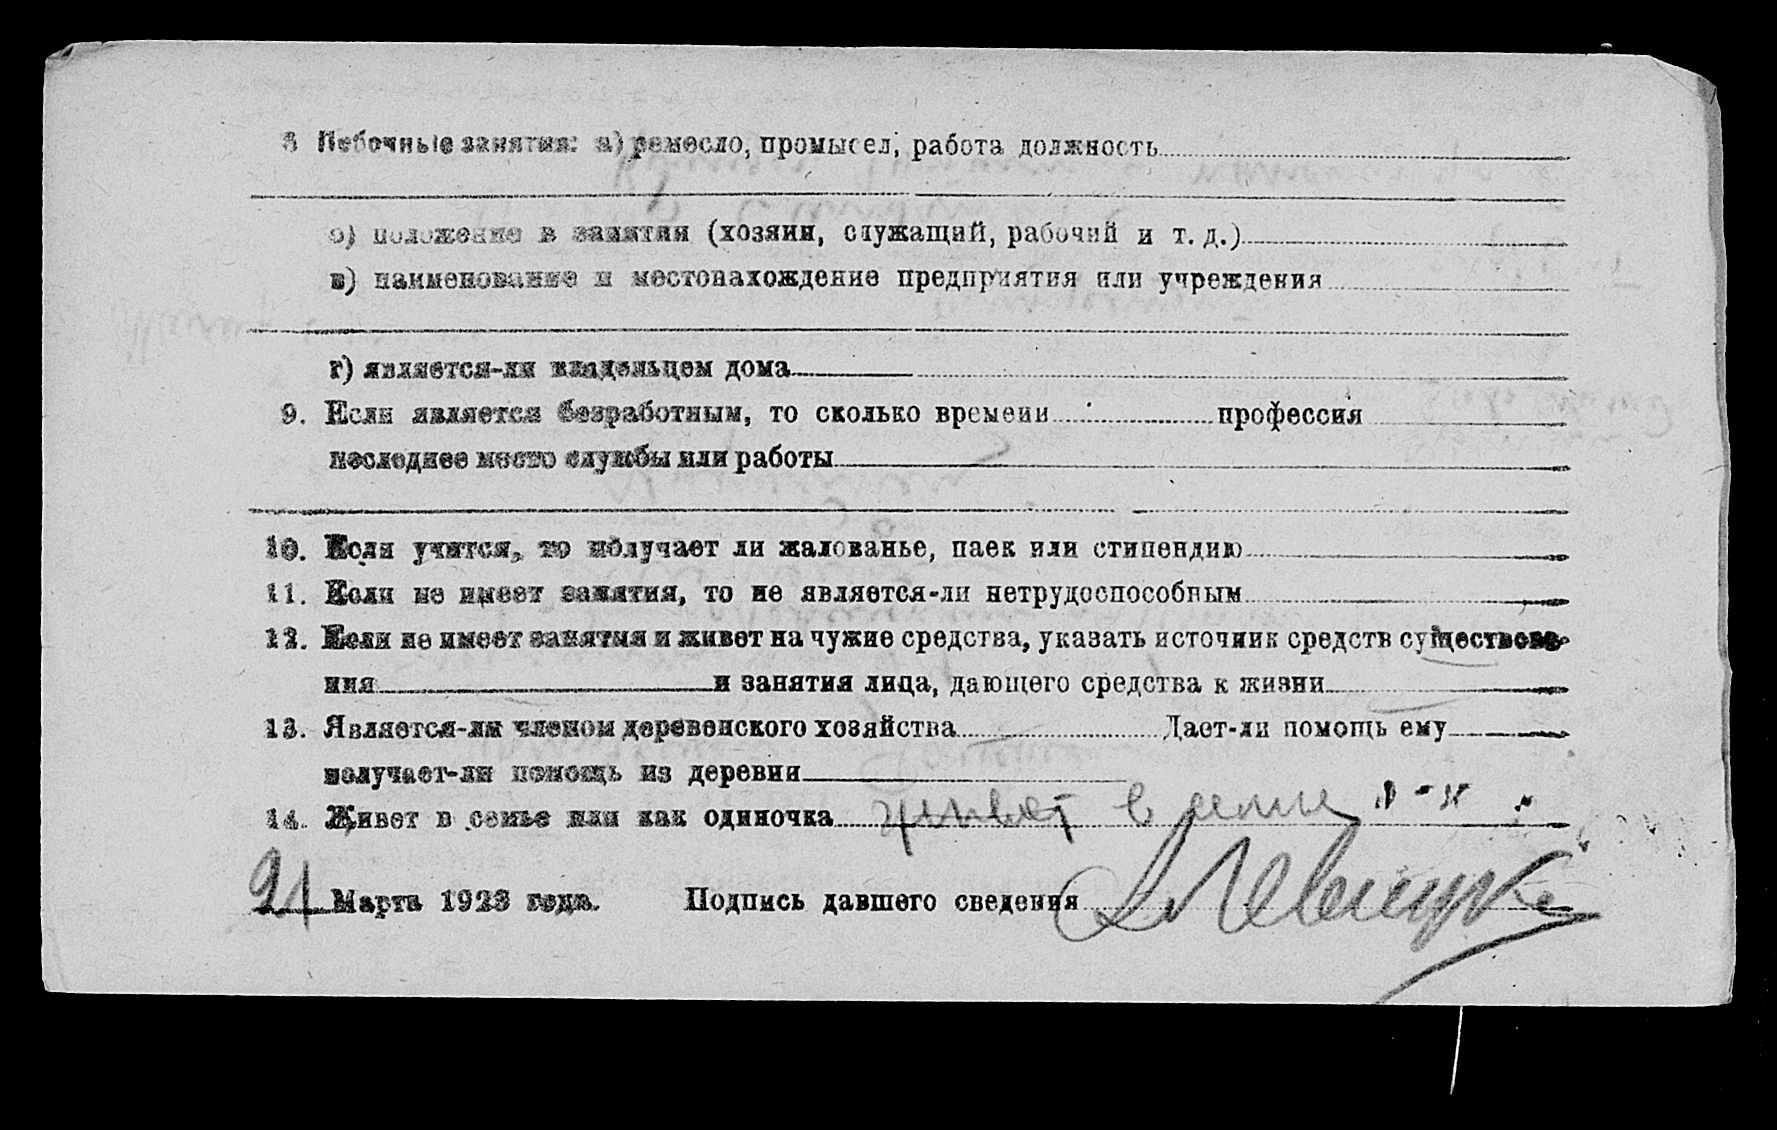 8 Побочные занятия: а) ремесло, промысел, работа должность
б) положение в занятии (хозяин, служащий, рабочий и т. д.)
в) наименование и местонахождение предприятия или учреждения
г) является-ли владельцем дома
9. Если является безработным, то сколько времени профессия
последнее место службы или работы
10. Если учится, то получает ли жалованье, паек или стипендию
11. Если не имеет занятия, то не является-ли нетрудоспособным
12. Если не имеет занятия и живет на чужие средства, указать источник средств существова-
ния и занятия лица, дающего средства к жизни
13. Является-ли членом деревенского хозяйства Дает-ли помощь ему
получает-ли помощь из деревни
14. Живет в семье или как одиночка живет в семье
21 Марта 1923 года. Подпись давшего сведения Левицк